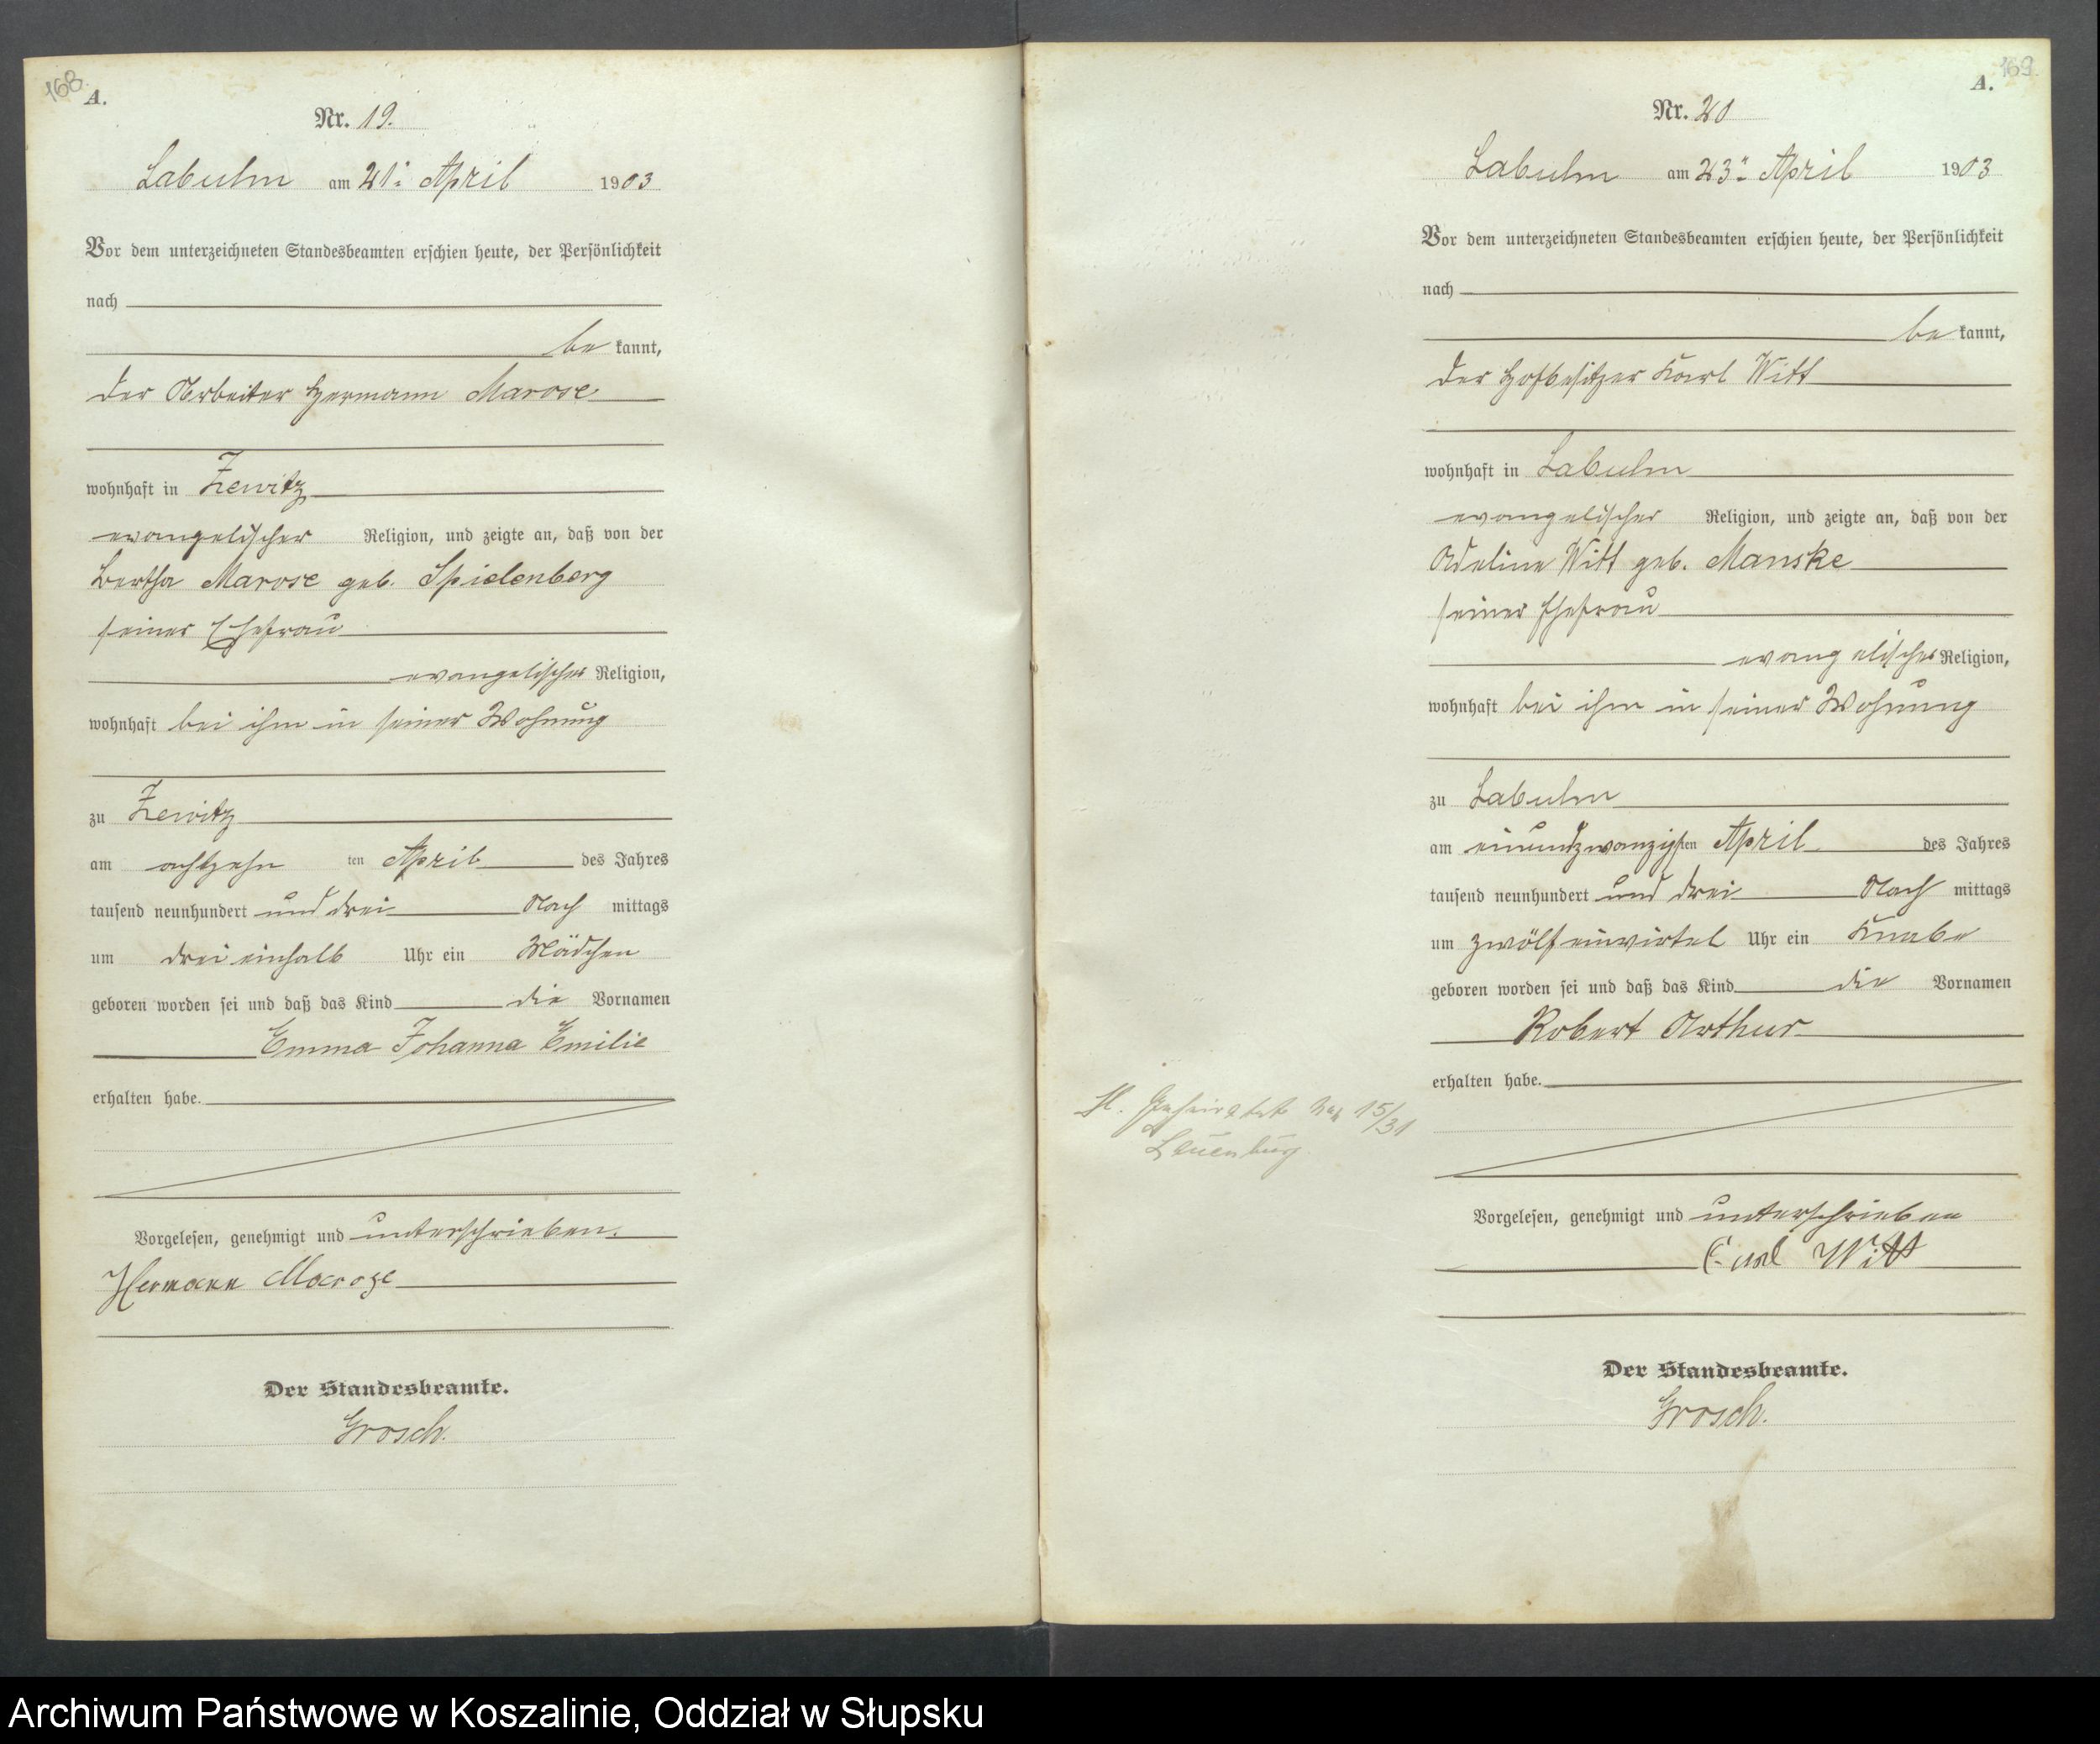 168.
A.
Nr. 19.
Labuhn am 21. April 1903
Vor dem unterzeichneten Standesbeamten erschien heute, der Persönlichkeit
nach
be kannt,
der Arbeiter Hermann Marose
wohnhaft in Zewitz
evangelischer Religion, und zeigte an, daß von der
Bertha Marose geb. Spielenberg
seiner Ehefrau
evangelischer Religion,
wohnhaft bei ihm in seiner Wohnung
zu Zewitz
am achtzehn ten April des Jahres
tausend neunhundert und drei Nach mittags
um drei einhalb Uhr ein Mädchen
geboren worden sei und daß das Kind die Vornamen
Emma Johanna Emilie
erhalten habe.
Vorgelesen, genehmigt und unterschrieben.
Hermann Marose
Der Standesbeamte.
Grosch.
169.
A.
Nr. 20
Labuhn am 23. April 1903
Vor dem unterzeichneten Standesbeamten erschien heute, der Persönlichkeit
nach
be kannt,
der Hofbesitzer Karl Witt
wohnhaft in Labuhn
evangelischer Religion, und zeigte an, daß von der
Adeline Witt geb. Manske
seiner Ehefrau
evangelischer Religion,
wohnhaft bei ihm in seiner Wohnung
zu Labuhn
am einundzwanzigsten April des Jahres
tausend neunhundert und drei Nach mittags
um zwölf einviertel Uhr ein Knabe
geboren worden sei und daß das Kind die Vornamen
Robert Arthur
erhalten habe.
H. Geheiratet 15/31
Lauenburg
Vorgelesen, genehmigt und unterschrieben
Carl Witt
Der Standesbeamte.
Grosch.
Archiwum Państwowe w Koszalinie, Oddział w Słupsku